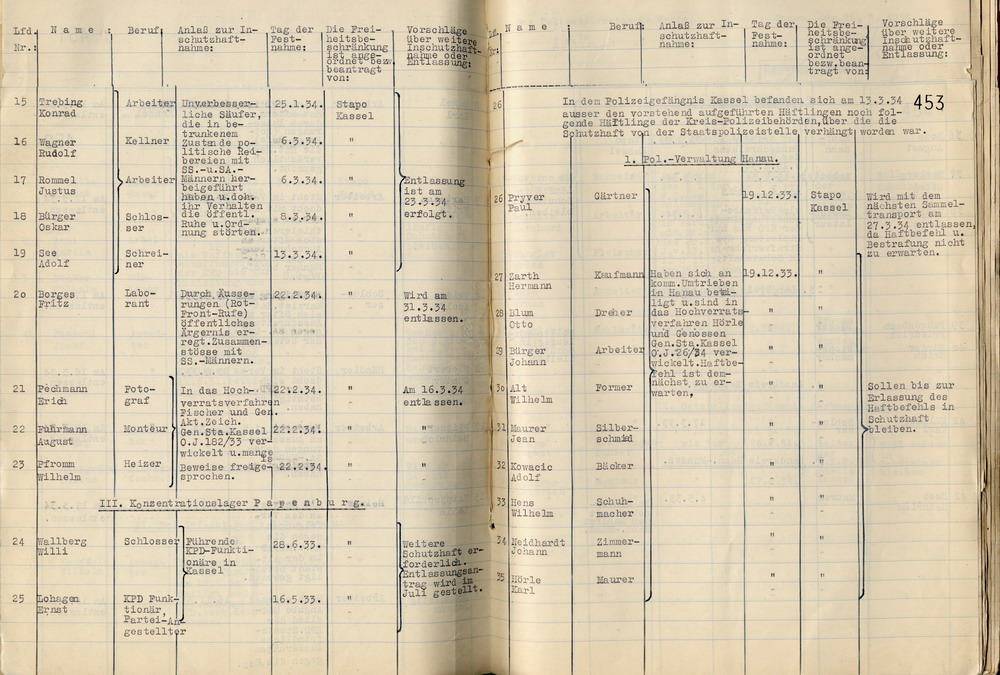 Lfd. Nr.:
Name:
Beruf:
Anlaß zur In-
schutzhaft-
nahme:
Tag der
Fest-
nahme:
Die Frei-
heitsbe-
schränkung
ist ange-
ordnet bezw.
beantragt
von:
Vorschläge
über weitere
Inschutzhaft-
nahme oder
Entlassung:
15 Trebing
Konrad
Arbeiter
Unverbesser-
liche Säufer,
die in be-
trunkenem
Zustande po-
litische Rei-
bereien mit
SS.-u.SA.-
Männern her-
beigeführt
haben u.dch.
ihr Verhalten
die öffentl.
Ruhe u.Ord-
nung störten.
25.1.34.
Stapo
Kassel
16 Wagner
Rudolf
Kellner
6.3.34.
"
17 Rommel
Justus
Arbeiter
6.3.34.
"
Entlassung
ist am
23.3.34
erfolgt.
18 Bürger
Oskar
Schlos-
ser
8.3.34.
"
19 See
Adolf
Schrei-
ner
13.3.34.
"
20 Borges
Fritz
Labo-
rant
Durch Äusse-
rungen (Rot-
Front-Rufe)
öffentliches
Ärgernis er-
regt.Zusammen-
stösse mit
SS.-Männern.
22.2.34.
"
Wird am
31.3.34
entlassen.
21 Pechmann
Erich
Foto-
graf
In das Hoch-
verratsverfahren
Fischer und Gen.
Akt.Zeich.
Gen.Sta.Kassel
O.J.182/33 ver-
wickelt u.mange
ls
Beweise freige-
sprochen.
22.2.34.
"
Am 16.3.34
entlassen.
22 Führmann
August
Monteur
22.2.34.
"
"
23 Pfromm
Wilhelm
Heizer
22.2.34.
"
"
III. Konzentrationslager Papenburg.
24 Wallberg
Willi
Schlosser
Führende
KPD-Funkti-
onäre in
Kassel
28.6.33.
"
Weitere
Schutzhaft er-
forderlich.
Entlassungsan-
trag wird im
Juli gestellt.
25 Lohagen
Ernst
KPD Funk-
tionär,
Partei-An-
gestellter
16.5.33.
"
Name:
Beruf:
Anlaß zur In-
schutzhaft-
nahme:
Tag der
Fest-
nahme:
Die Frei-
heitsbe-
schränkung
ist ange-
ordnet
bezw.bean-
tragt von:
Vorschläge
über weitere
Inschutzhaft-
nahme oder
Entlassung:
453
26
In dem Polizeigefängnis Kassel befanden sich am 13.3.34
ausser den vorstehend aufgeführten Häftlingen noch fol-
gende Häftlinge der Kreis-Polizeibehörden,über die die
Schutzhaft von der Staatspolizeistelle verhängt worden war.
1. Pol.-Verwaltung Hanau.
26 Pryver
Paul
Gärtner
19.12.33.
Stapo
Kassel
Wird mit dem
nächsten Sammel-
transport am
27.3.34 entlassen,
da Haftbefehl u.
Bestrafung nicht
zu erwarten.
27 Zarth
Hermann
Kaufmann
Haben sich an
komm.Umtrieben
in Hanau betei-
ligt u.sind in
das Hochverrats-
verfahren Hörle
und Genossen
Gen.Sta.Kassel
O.J.26/34 ver-
wickelt.Haftbe-
fehl ist dem-
nächst zu er-
warten,
19.12.33.
"
28 Blum
Otto
Dreher
"
"
29 Bürger
Johann
Arbeiter
"
"
30 Alt
Wilhelm
Former
"
"
Sollen bis zur
Erlassung des
Haftbefehls in
Schutzhaft
bleiben.
31 Maurer
Jean
Silber-
schmied
"
"
32 Kowacic
Adolf
Bäcker
"
"
33 Hens
Wilhelm
Schuh-
macher
"
"
34 Neidhardt
Johann
Zimmer-
mann
"
"
35 Hörle
Karl
Maurer
"
"